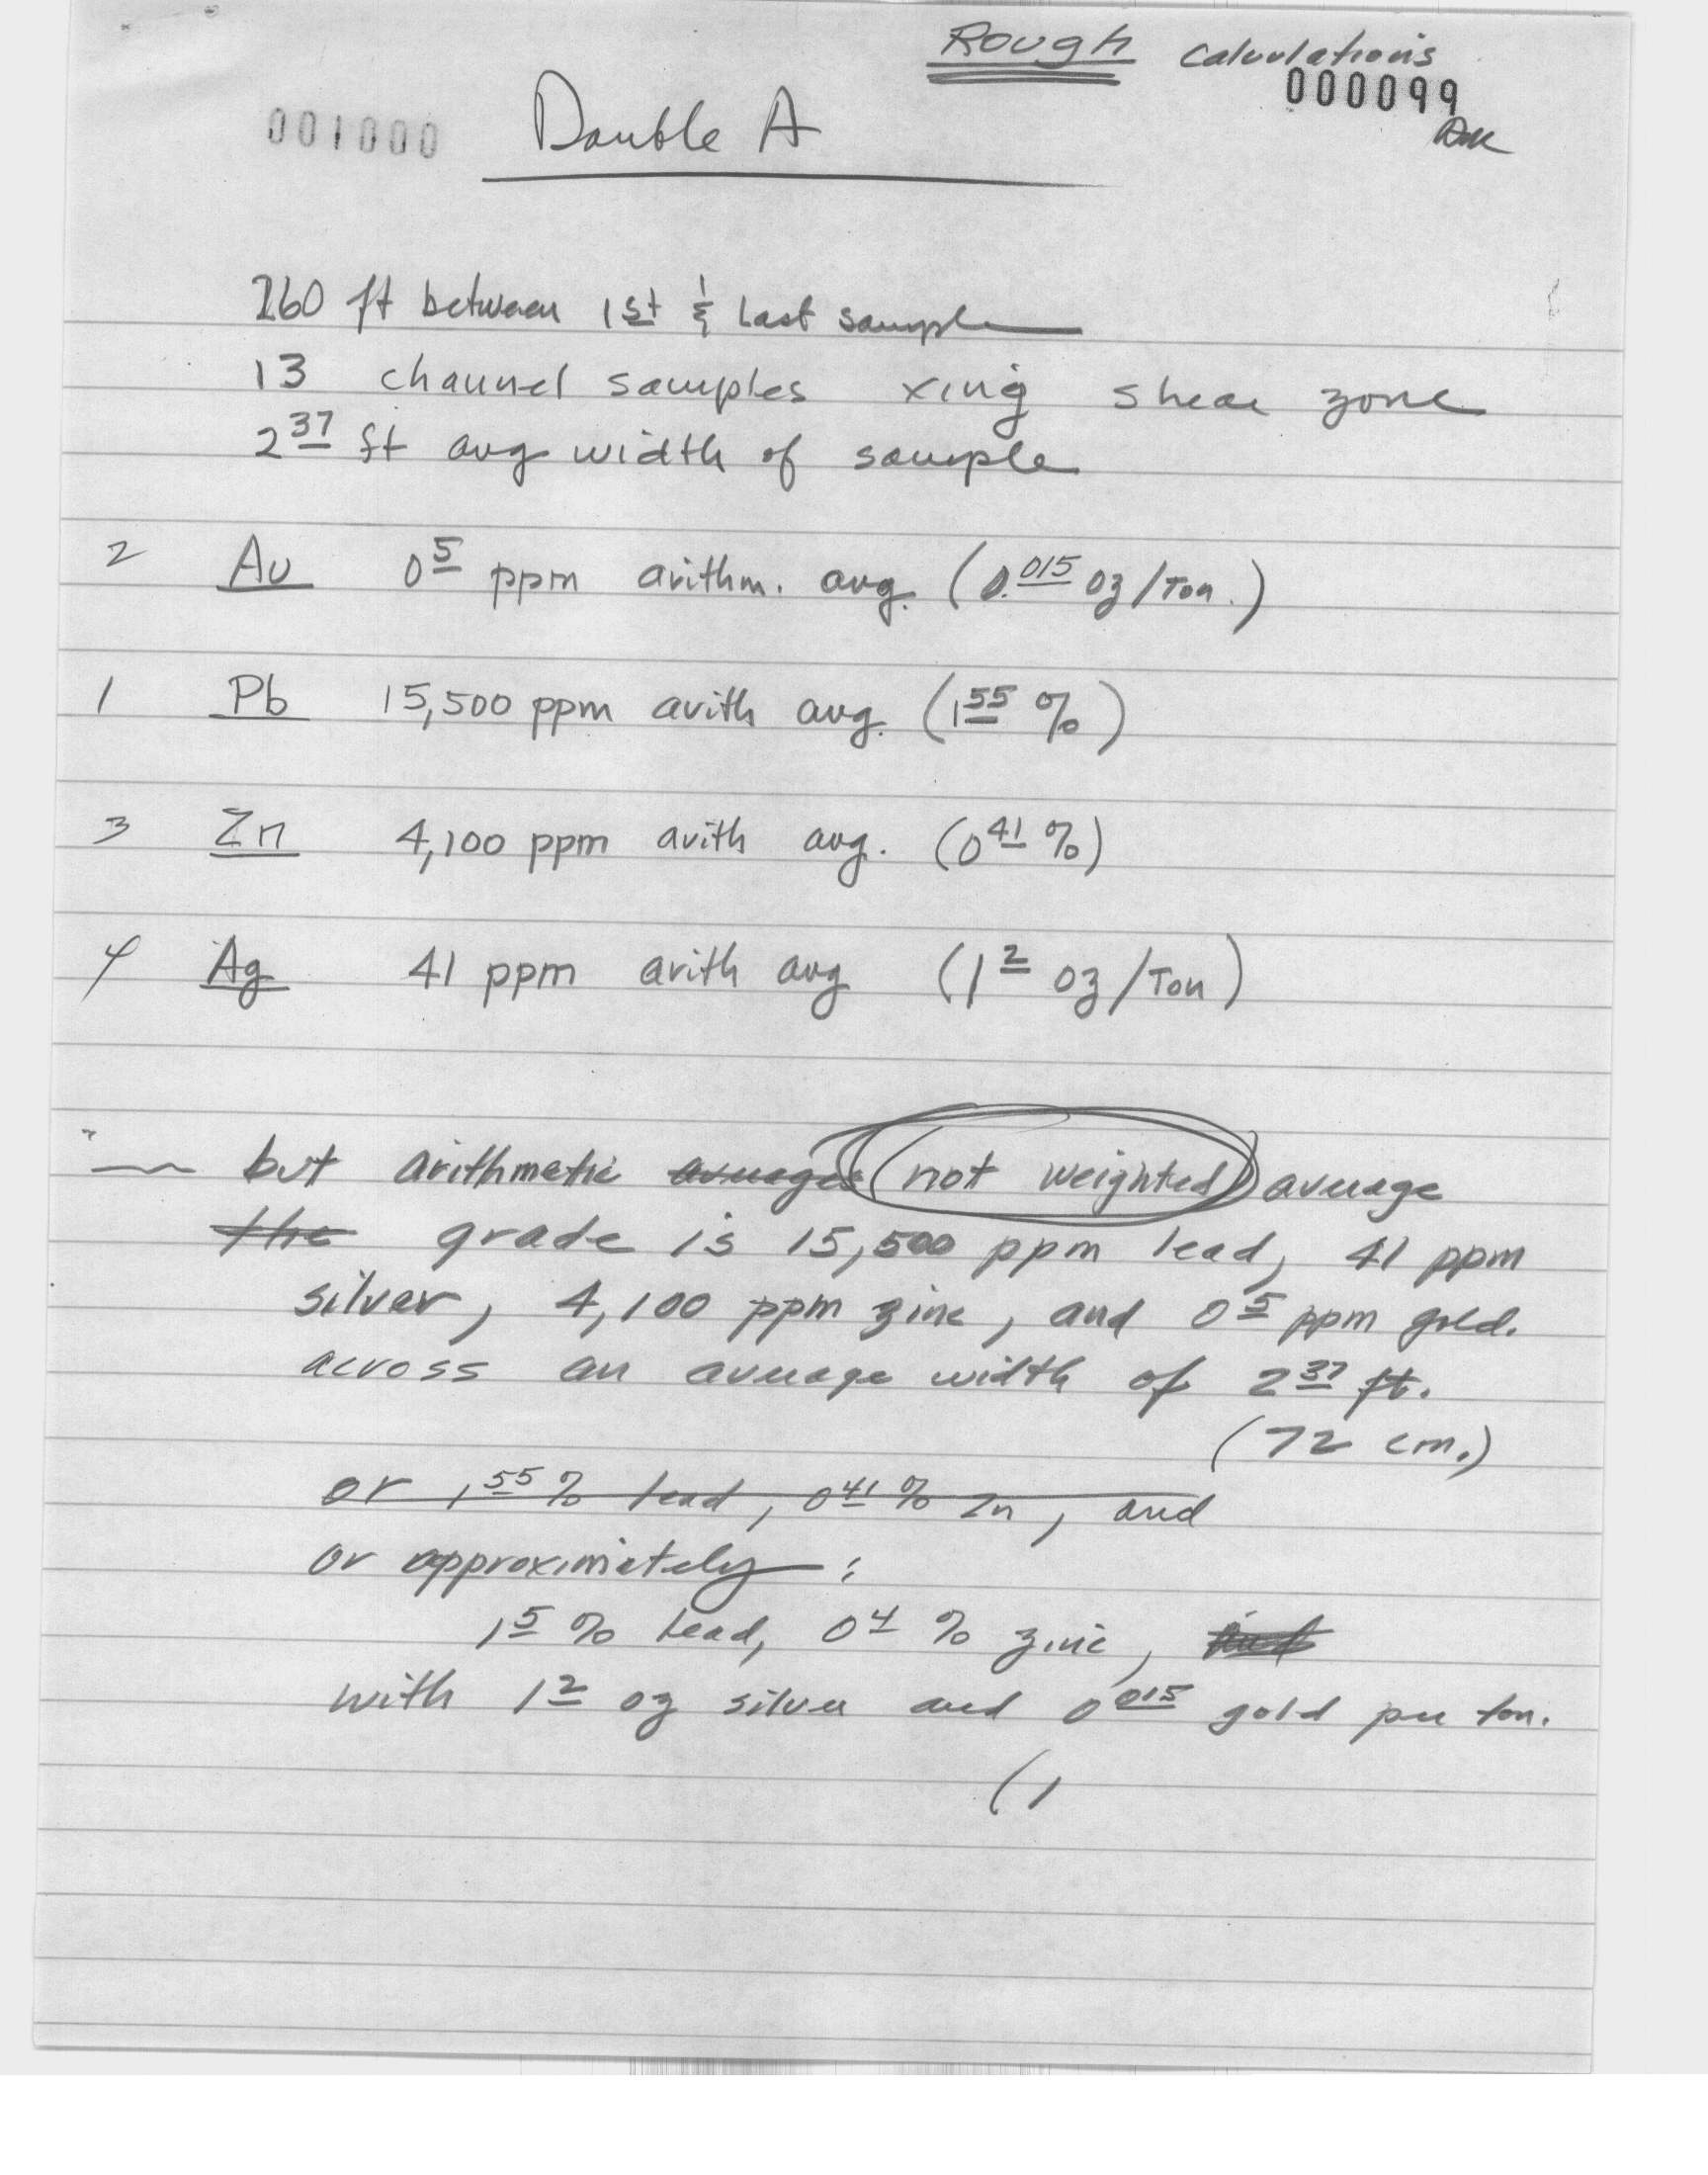 Rough Calculations
000099
001000 Double A
260 ft between 1st & last sample
13 channel samples xing shear zone
2 37 ft avg width of sample
2 Au 0 5 ppm arithm. avg. (0.015 oz/Ton.)
1 Pb 15,500 ppm arith avg. (1 55 %)
3 Zn 4,100 ppm arith avg. (0 41 %)
4 Ag 41 ppm arith avg (1 2 oz/Ton)
— but arithmetic average (not weighted) average
the grade is 15,500 ppm lead, 41 ppm
silver, 4,100 ppm zinc, and 0 5 ppm gold.
across an average width of 2 37 ft.
(72 cm.)
or 1 55 % lead, 0 41 % Zn, and
or approximately:
1 5 % lead, 0 4 % zinc, and
with 1 2 oz silver and 0 015 gold per ton.
(1